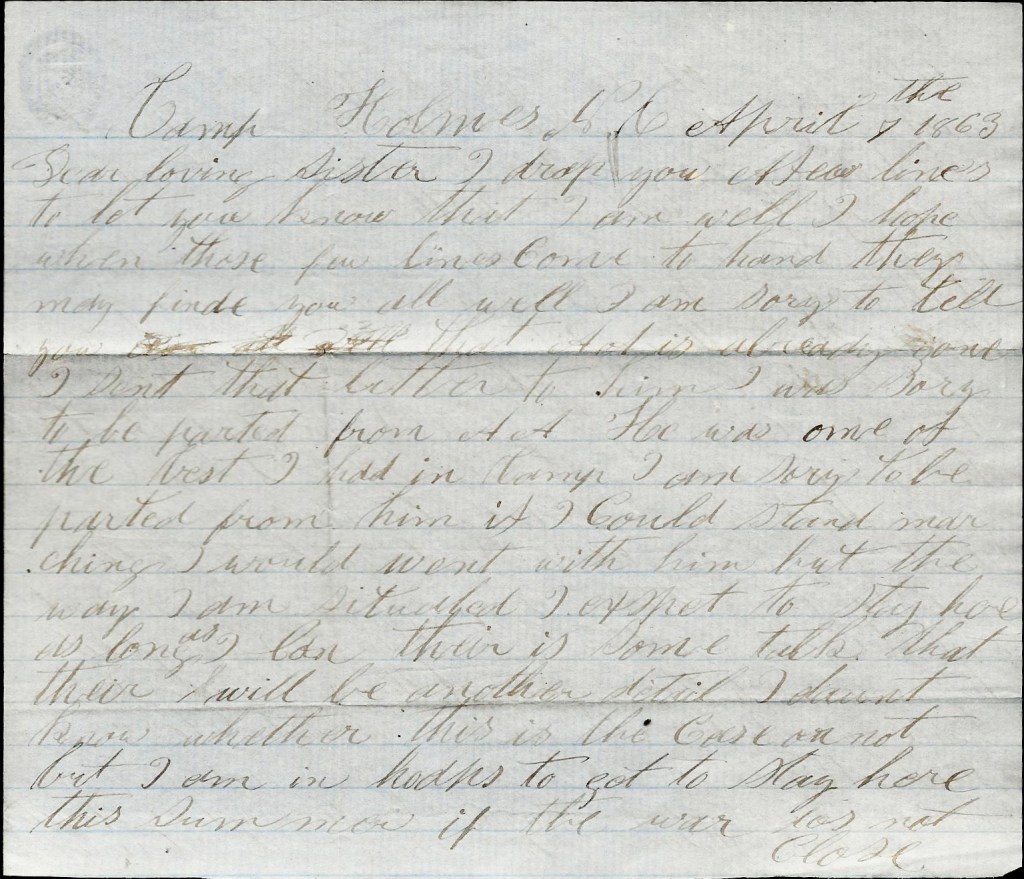 Camp Holmes N C April 7 the 1863
Dear loving Sister I drop you A few lines
to let you know that I am well I hope
when those few lines Come to hand they
may finde you all well I am sory to tell
you that is already gone
I sent that letter to him I was Sory
to be parted from A A He was ome of
the best I had in Camp I am sory to be
parted from him if I Could stand mar
ching I would went with him but the
way I am situated I exspet to stay hoe
as long as I Can their is some talk that
their will be another detail I daunt
know whether this is the Case or not
but I am in to got to stay here
this Summer if the war dos not
Close